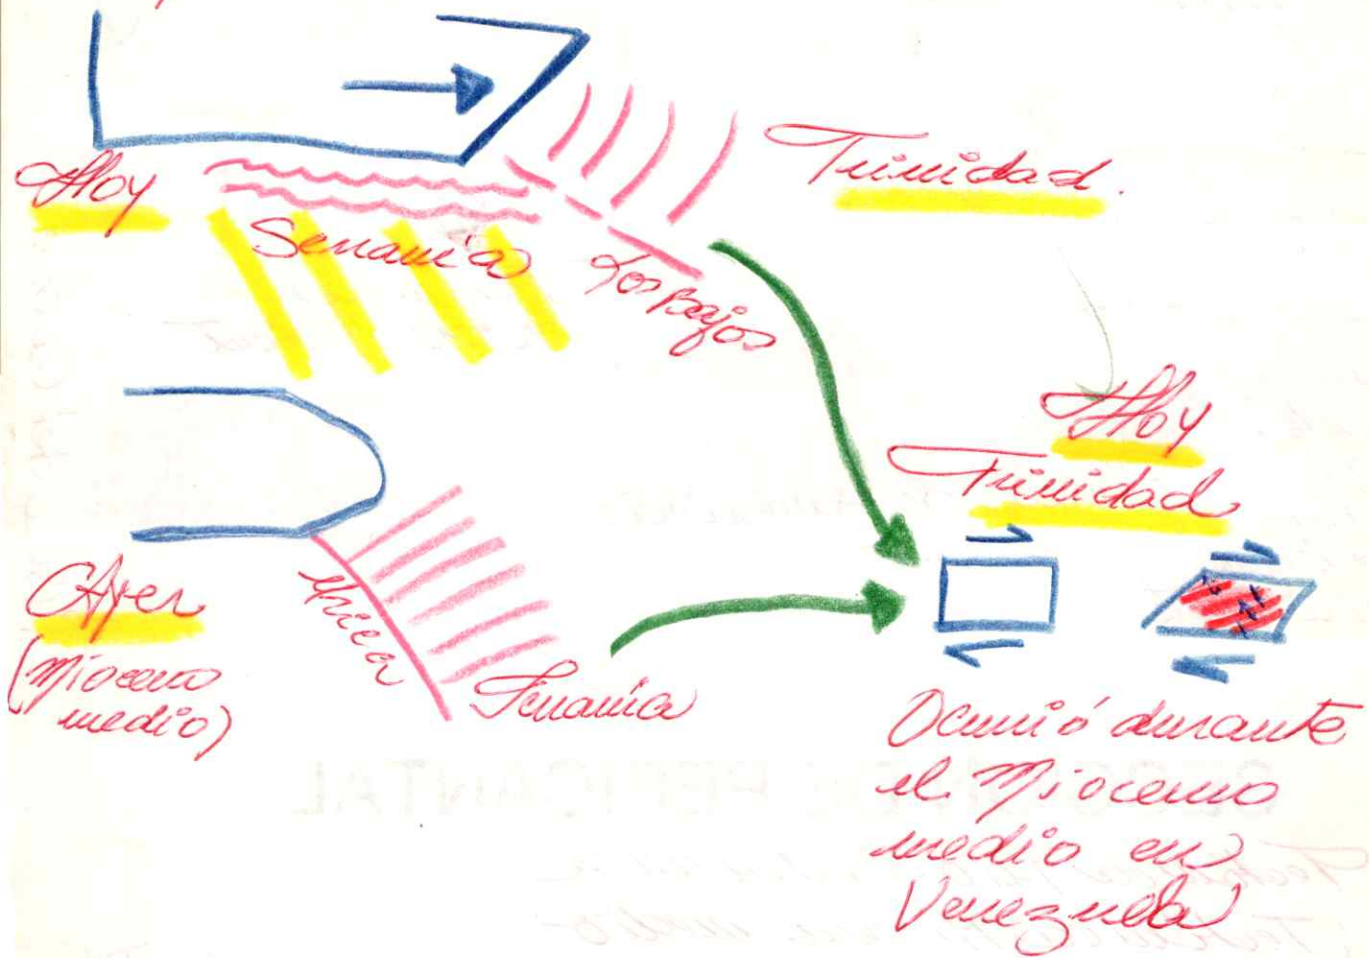 Hoy
Trinidad.
Serranía
Los Bajos
Hoy
Trinidad
Ayer
(Mioceno
medio)
Urica
Serranía
Ocurrió durante
el Mioceno
medio en
Venezuela